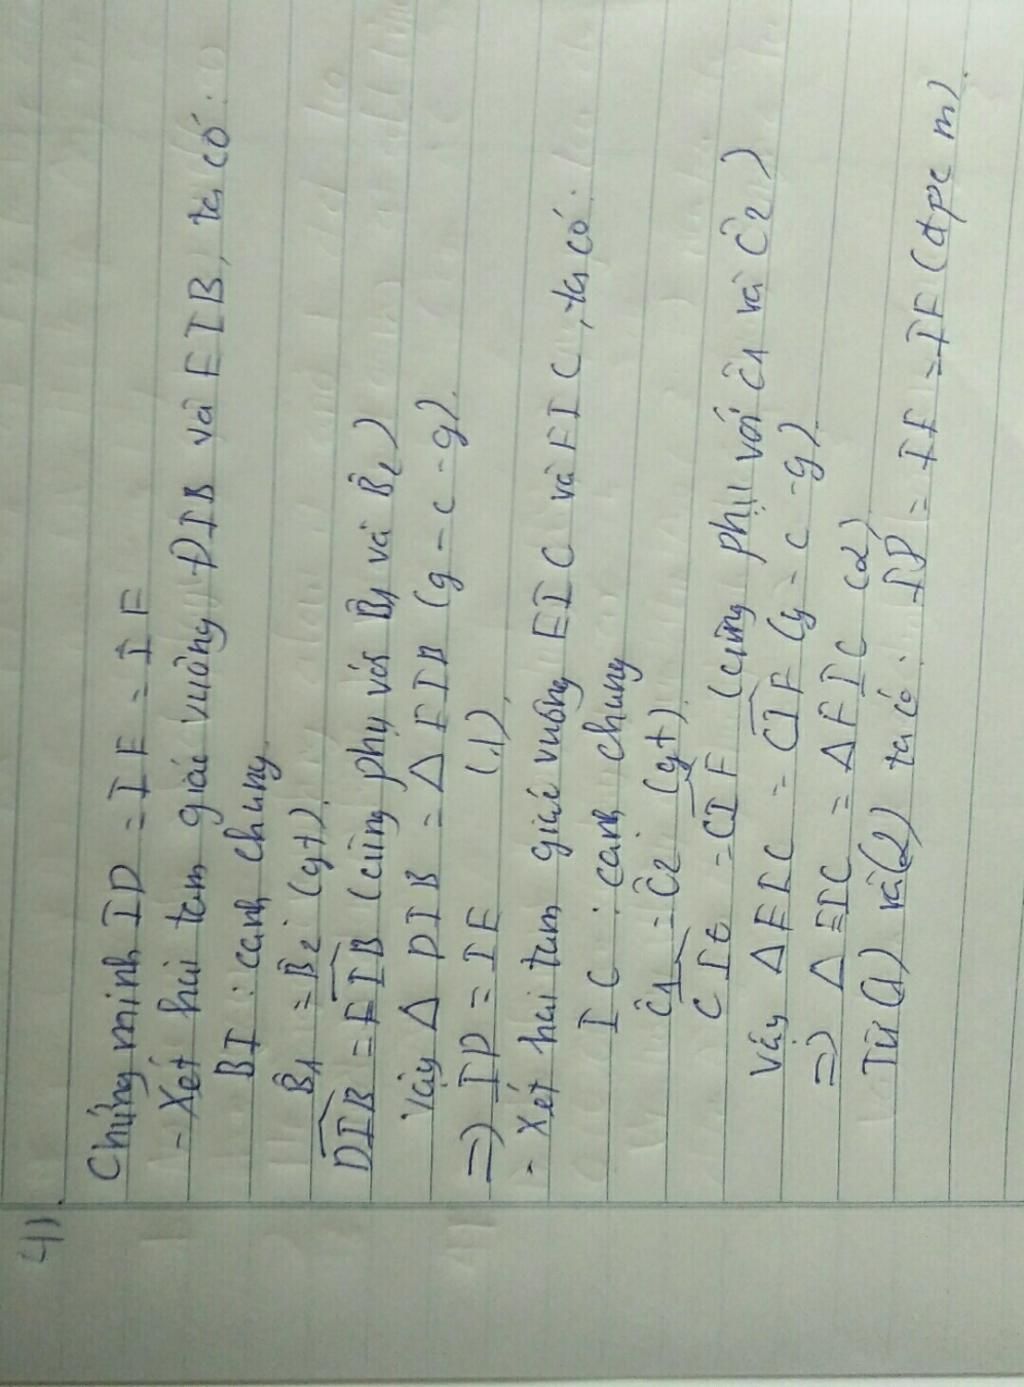 4)
Chứng minh ID = IE = IF
- Xét hai tam giác vuông DIB và EIB, ta có:
BI : cạnh chung
B̂1 = B̂2 (gt).
DIB = EIB (cùng phụ với B̂1 và B̂2)
Vậy Δ DIB = Δ EIB (g - c - g).
=) ID = IE (1)
- Xét hai tam giác vuông EIC và FIC, ta có:
IC : cạnh chung
Ĉ1 = Ĉ2 (gt).
CIE = CIF (cùng phụ với Ĉ1 và Ĉ2)
Vậy Δ EIC = CIF (g - c - g)
=) Δ EIC = Δ FIC (2)
Từ (1) và (2) ta có: ID = IE = IF (đpc m).